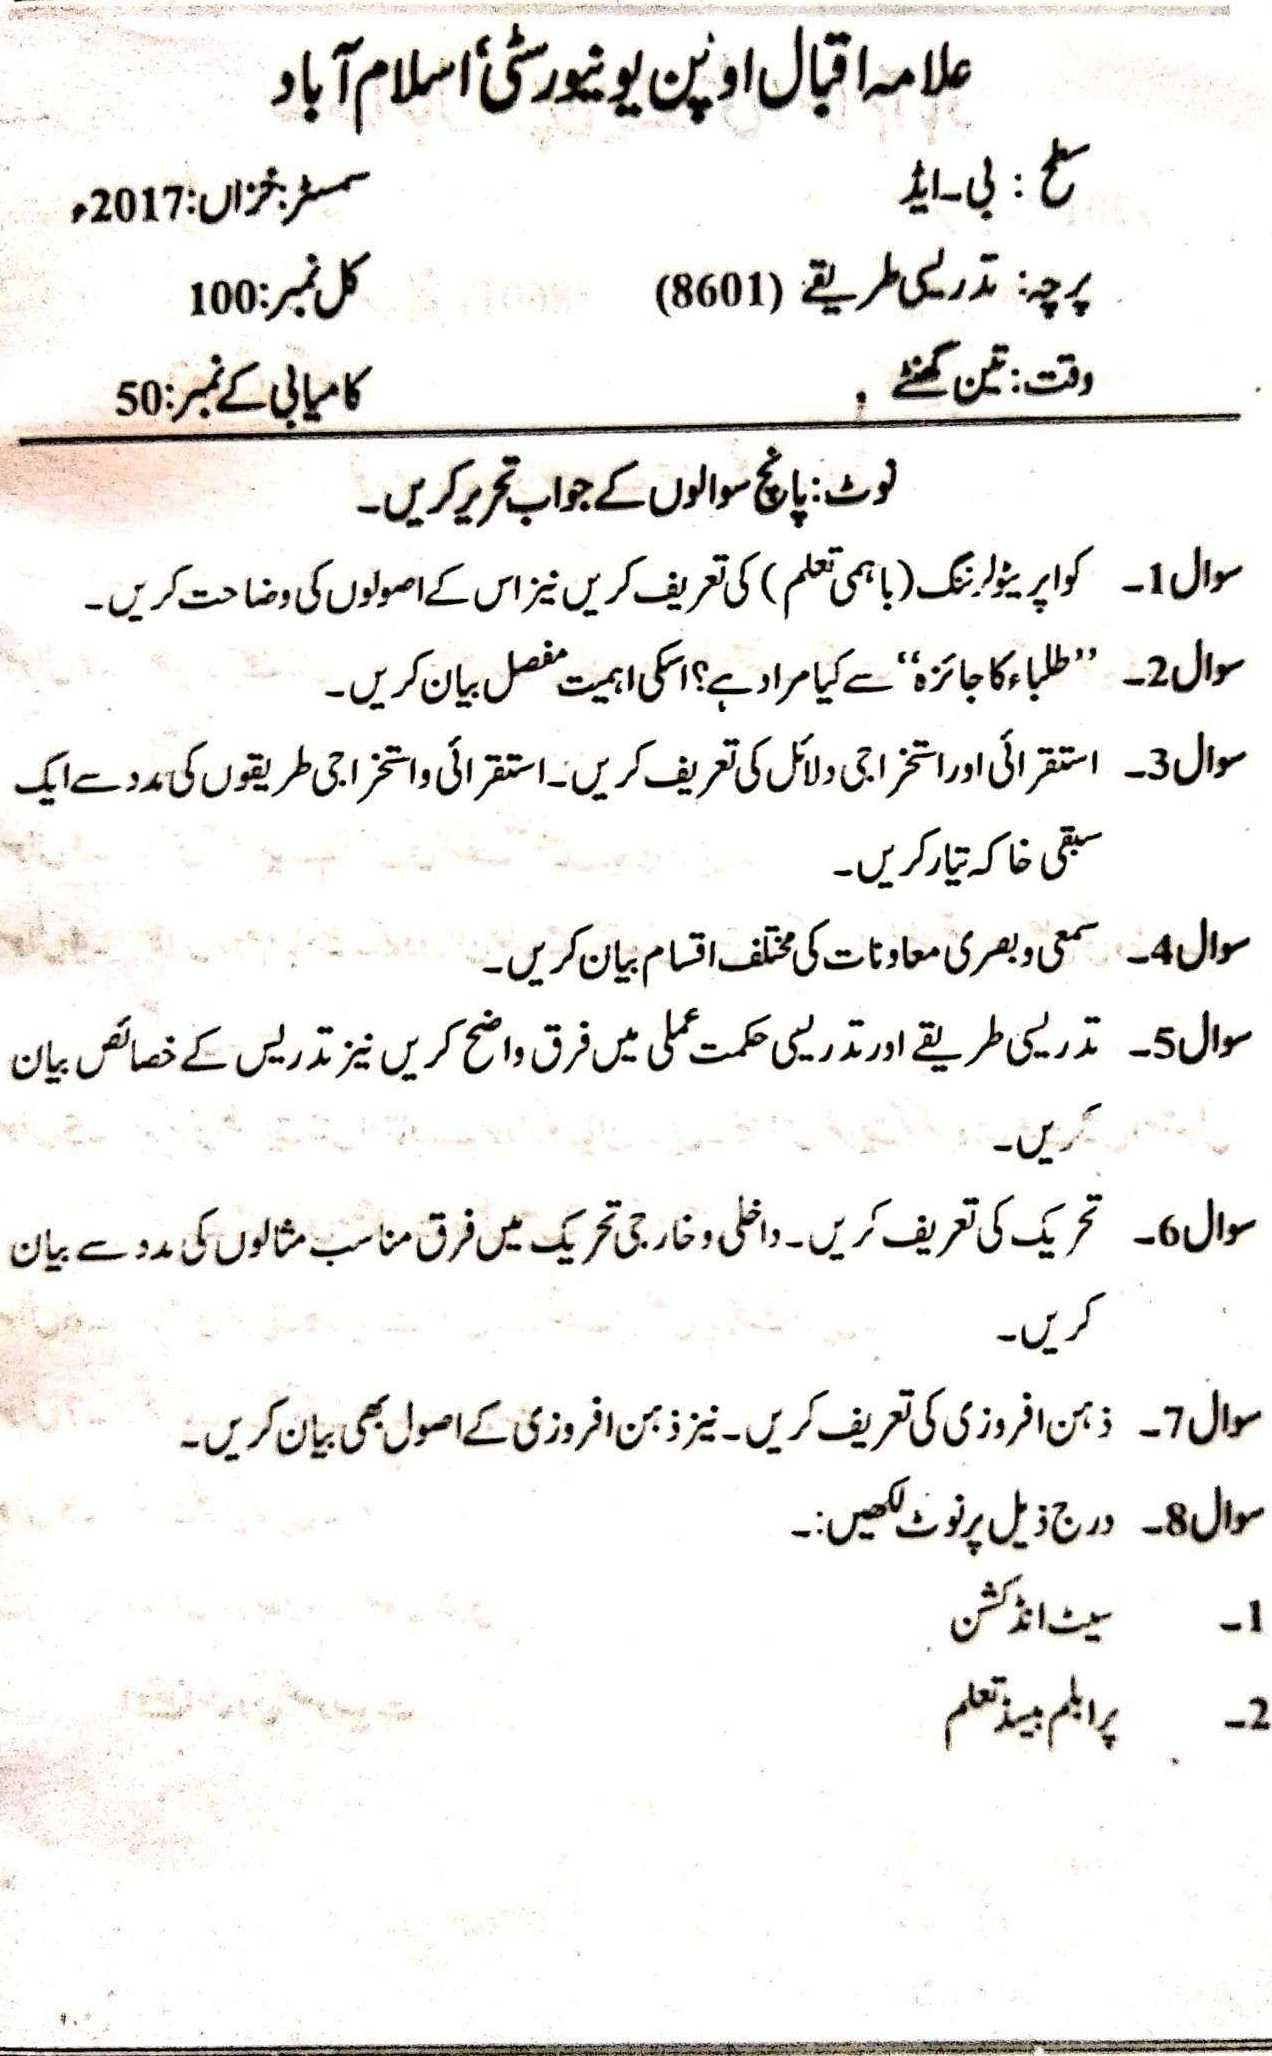 علامہ اقبال اوپن یونیورسٹی' اسلام آباد
سطح : بی۔ایڈ سمسٹر:خزاں:2017ء
پرچہ: تدریسی طریقے (8601) کل نمبر:100
وقت: تین گھنٹے کامیابی کے نمبر:50
نوٹ: پانچ سوالوں کے جواب تحریر کریں۔
سوال 1۔ کواپریٹولرننگ (باہمی تعلم) کی تعریف کریں نیز اس کے اصولوں کی وضاحت کریں۔
سوال 2۔ "طلباء کا جائزہ" سے کیا مراد ہے؟ اسکی اہمیت مفصل بیان کریں۔
سوال 3۔ استقرائی اور استخراجی دلائل کی تعریف کریں۔ استقرائی و استخراجی طریقوں کی مدد سے ایک
سبقی خاکہ تیار کریں۔
سوال 4۔ سمعی و بصری معاونات کی مختلف اقسام بیان کریں۔
سوال 5۔ تدریسی طریقے اور تدریسی حکمت عملی میں فرق واضح کریں نیز تدریس کے خصائص بیان
کریں۔
سوال 6۔ تحریک کی تعریف کریں۔ داخلی و خارجی تحریک میں فرق مناسب مثالوں کی مدد سے بیان
کریں۔
سوال 7۔ ذہن افروزی کی تعریف کریں۔ نیز ذہن افروزی کے اصول بھی بیان کریں۔
سوال 8۔ درج ذیل پر نوٹ لکھیں:۔
1۔ سیٹ انڈکشن
2۔ پرابلم بیسڈ تعلم